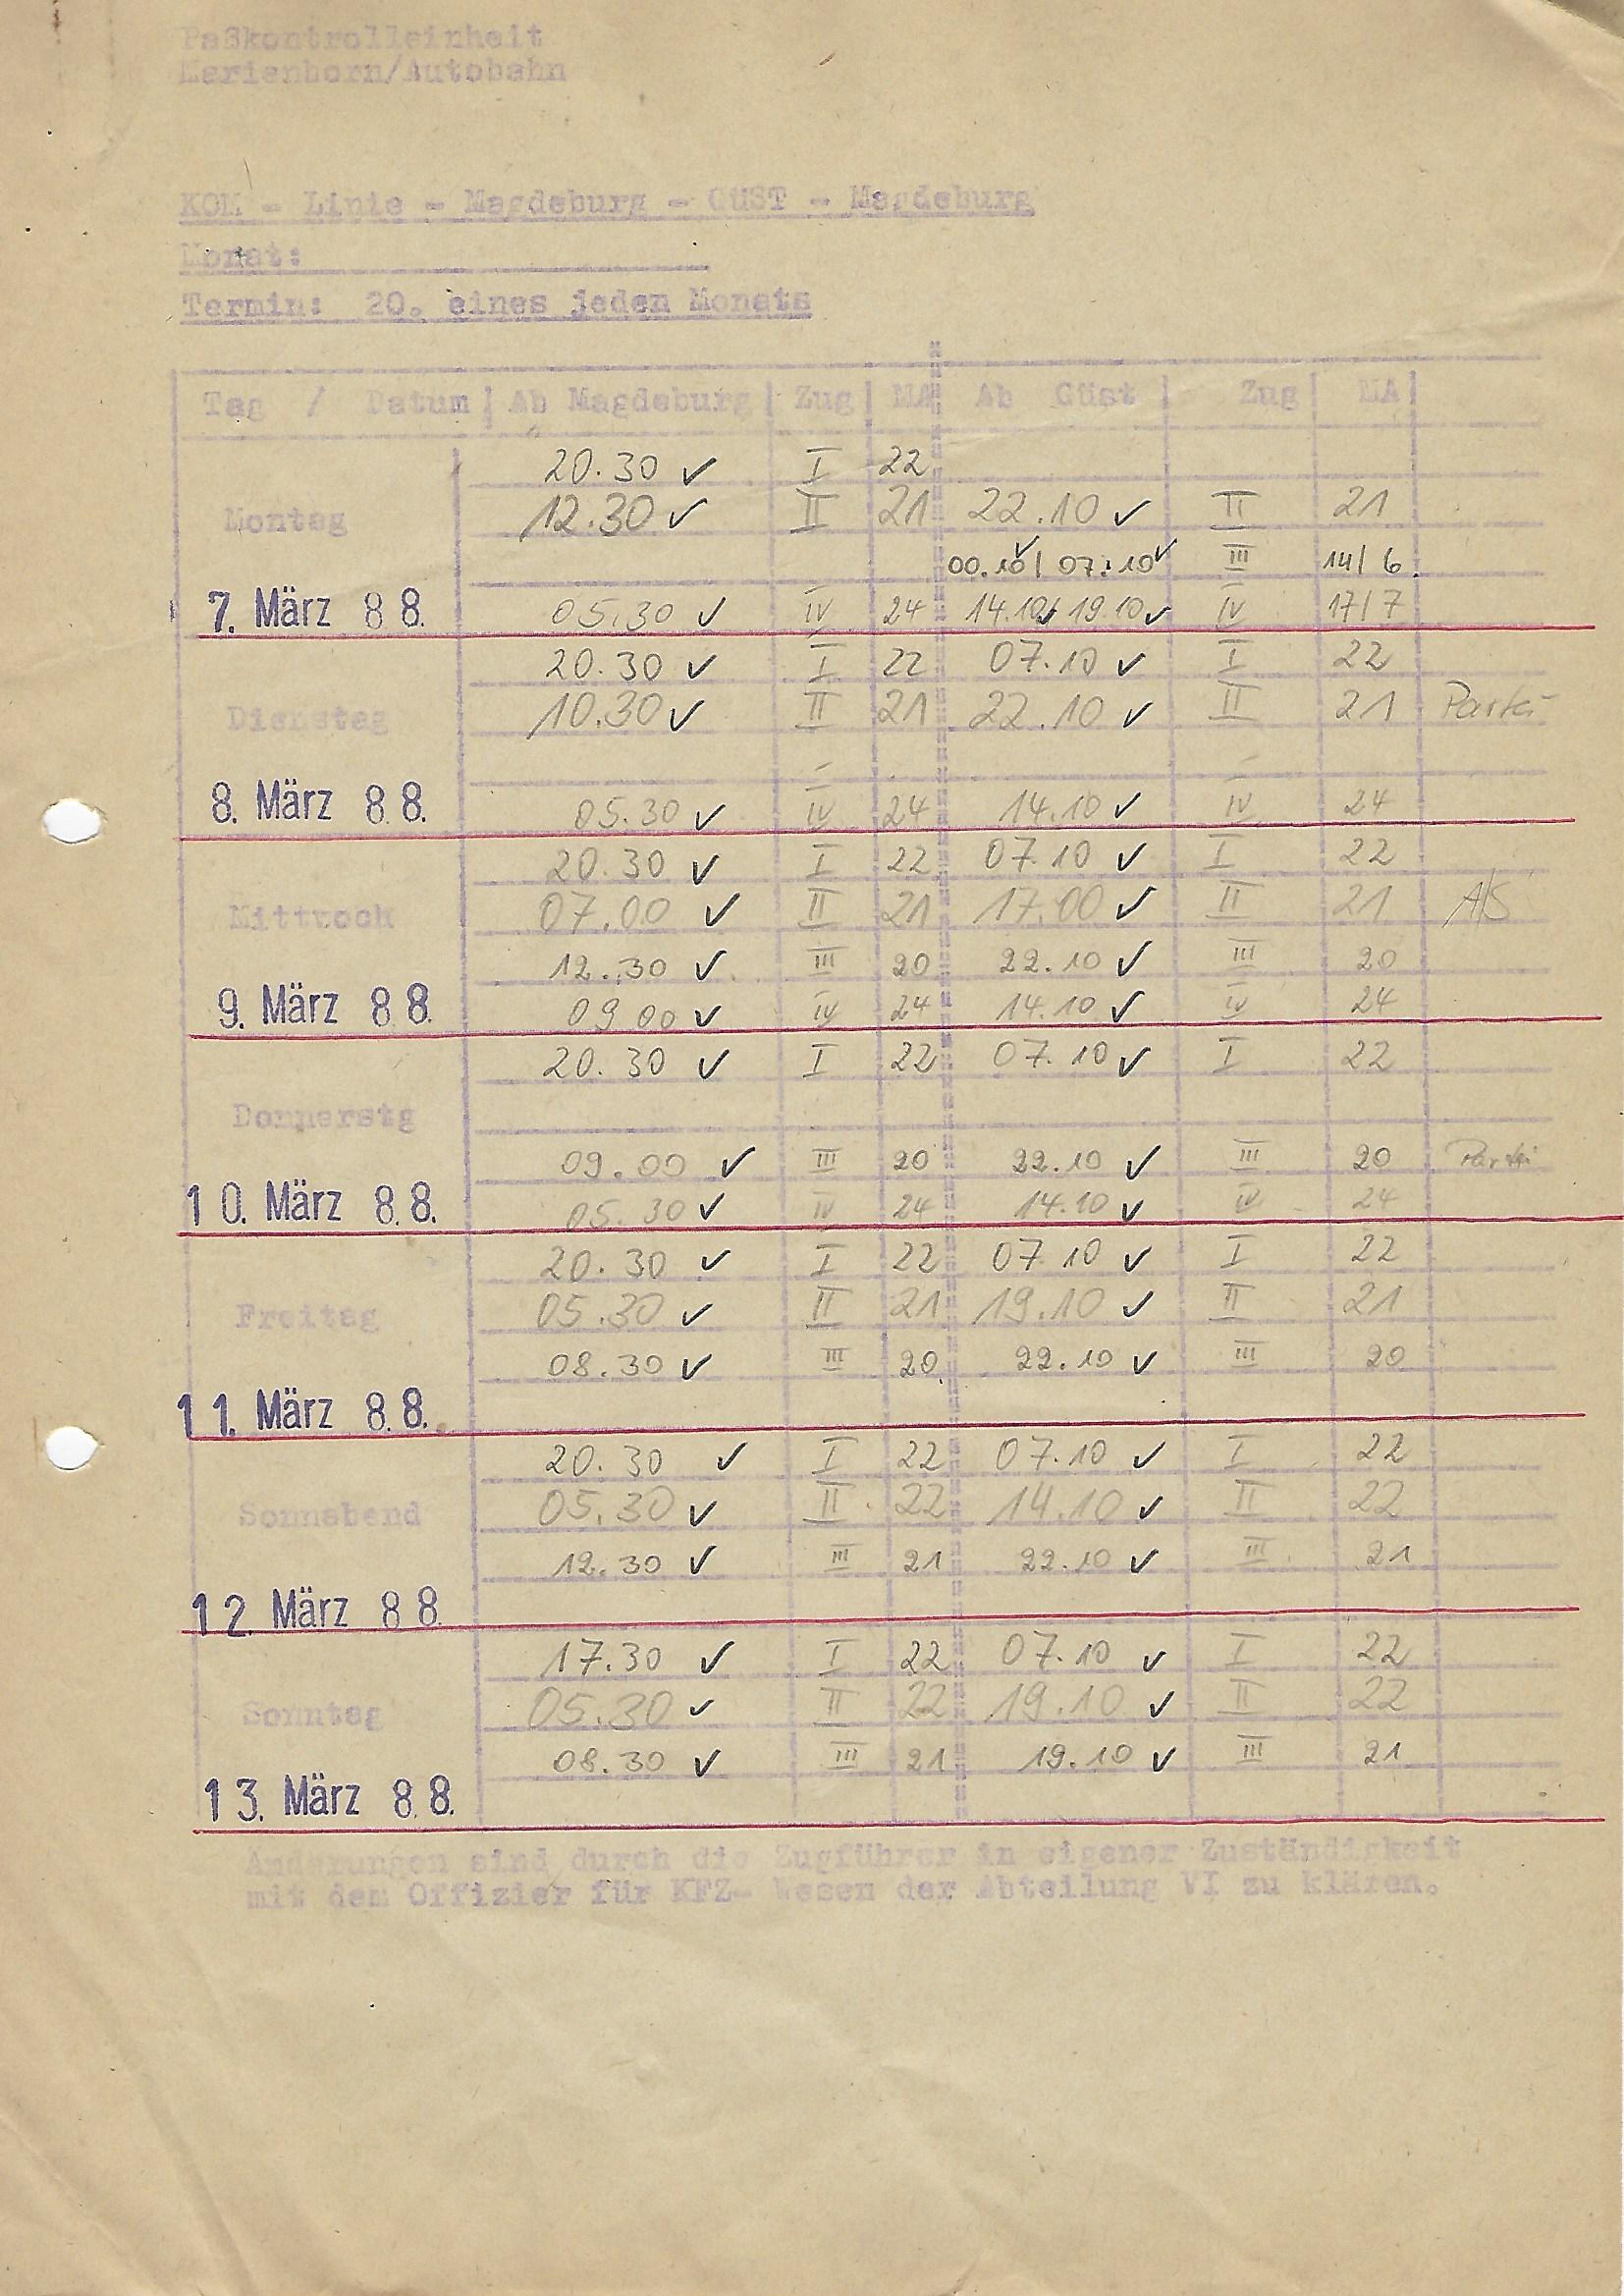 Paßkontrolleinheit
Marienborn/Autobahn
KOM - Linie - Magdeburg - GüST - Magdeburg
Monat:
Termin: 20. eines jeden Monats
Tag / Datum Ab Magdeburg Zug MA Ab Güst Zug MA
20.30 ✓ I 22
Montag 12.30 ✓ II 21 22.10 ✓ II 21
00.10 ✓ / 07.10 ✓ III 14/6
7. März 88. 05.30 ✓ IV 24 14.10 ✓ / 19.10 ✓ IV 17/7
20.30 ✓ I 22 07.10 ✓ I 22
Dienstag 10.30 ✓ II 21 22.10 ✓ II 21 Partei
8. März 88. 05.30 ✓ IV 24 14.10 ✓ IV 24
20.30 ✓ I 22 07.10 ✓ I 22
Mittwoch 07.00 ✓ II 21 17.00 ✓ II 21 A/S
12.30 ✓ III 20 22.10 ✓ III 20
9. März 88. 09.00 ✓ IV 24 14.10 ✓ IV 24
20.30 ✓ I 22 07.10 ✓ I 22
Donnerstg
09.00 ✓ III 20 22.10 ✓ III 20 Partei
10. März 88. 05.30 ✓ IV 24 14.10 ✓ IV 24
20.30 ✓ I 22 07.10 ✓ I 22
Freitag 05.30 ✓ II 21 19.10 ✓ II 21
08.30 ✓ III 20 22.10 ✓ III 20
11. März 88.
20.30 ✓ I 22 07.10 ✓ I 22
Sonnabend 05.30 ✓ II 22 14.10 ✓ II 22
12.30 ✓ III 21 22.10 ✓ III 21
12. März 88.
17.30 ✓ I 22 07.10 ✓ I 22
Sonntag 05.30 ✓ II 22 19.10 ✓ II 22
08.30 ✓ III 21 19.10 ✓ III 21
13. März 88.
Änderungen sind durch die Zugführer in eigener Zuständigkeit
mit dem Offizier für KFZ- Wesen der Abteilung VI zu klären.